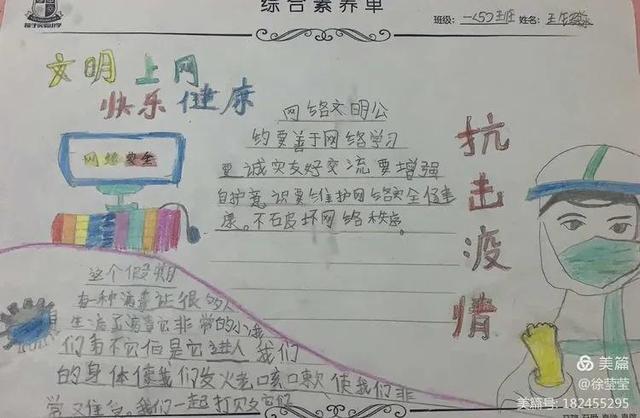 综合素养单
班级: 一(5)班 姓名:
文明上网
快乐健康
网络安全
网络文明公
约要善于网络学习
要诚实友好交流要增强
自护意识要维护网络安全健
康。不破坏网络秩序。
抗击疫情
这个假期
有种病毒让很多人
生活
们看不它但是它进入我们
的身体使我们发火老咳口軟使我们非
常难受。我们一起打败
美篇
@徐莹莹
美篇号: 182455295